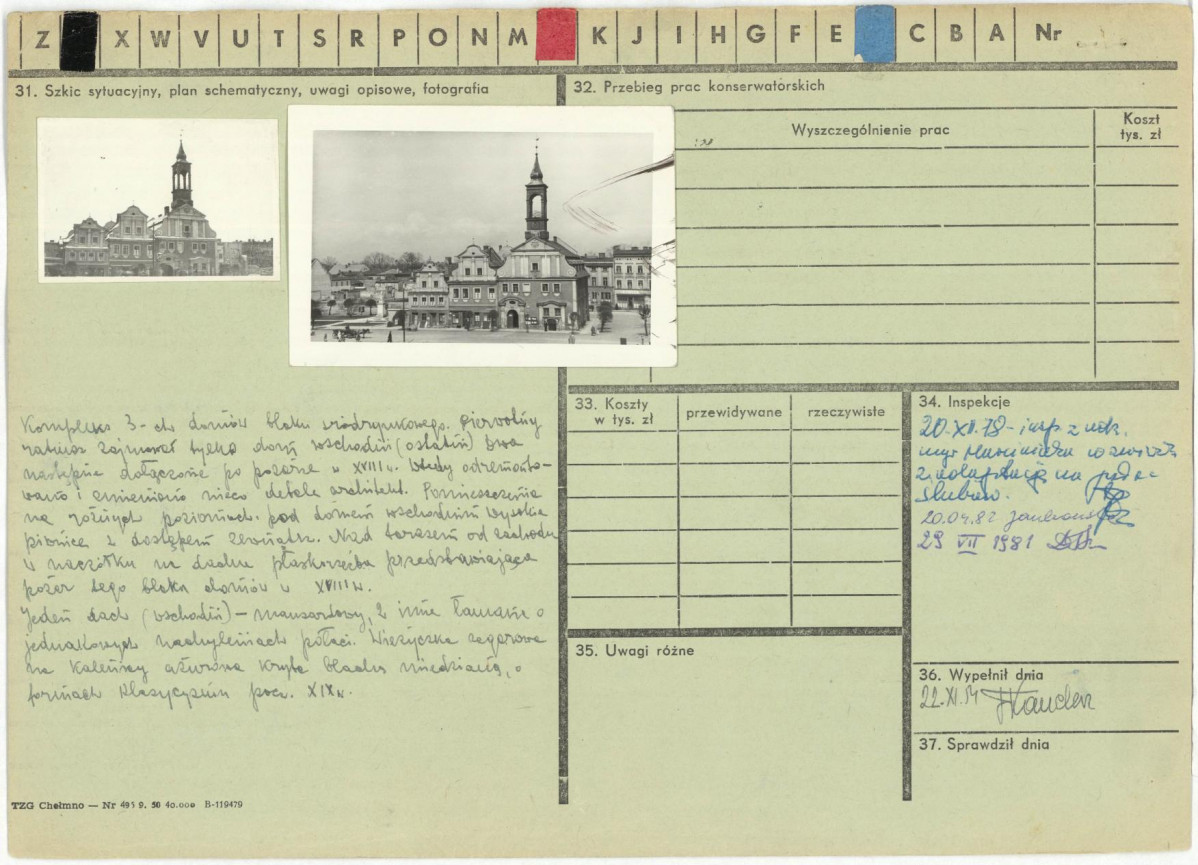 Z X W V U T S R P O N M K J I H G F E C B A Nr
31. Szkic sytuacyjny, plan schematyczny, uwagi opisowe, fotografia
Kompleks 3-ch domów bloku śródrynkowego. Pierwotny
ratusz zajmował tylko dom wschodni (ostatni) dwa
następne dołączone po pożarze w XVIII w. Wtedy odremonto-
wano i zmieniono nieco detale architekt. Pomieszczenia
na różnych poziomach. pod domem wschodnim wysokie
piwnice z dostępem zewnątrz. Nad tarasem od zachodu
w naczółku na dachu płaskorzeźba przedstawiająca
pożar tego bloku domów w XVIII w.
Jeden dach (wschodni) - mansardowy, 2 inne łamane o
jednakowych nachyleniach połaci. Wieżyczka zegarowa
na kalenicy ażurowa kryta blachą miedzianą, o
formach klasycyzmu pocz. XIX w.
TZG Chełmno — Nr 491 9. 50 40.000 B-119479
32. Przebieg prac konserwatorskich
Wyszczególnienie prac
Koszt
tys. zł
33. Koszty
w tys. zł
przewidywane
rzeczywiste
34. Inspekcje
20.XII.78 - insp. z
mgr
z adaptacją na
ślubów.
20.04.82
29 VII 1981
35. Uwagi różne
36. Wypełnił dnia
22.XI.54
37. Sprawdził dnia